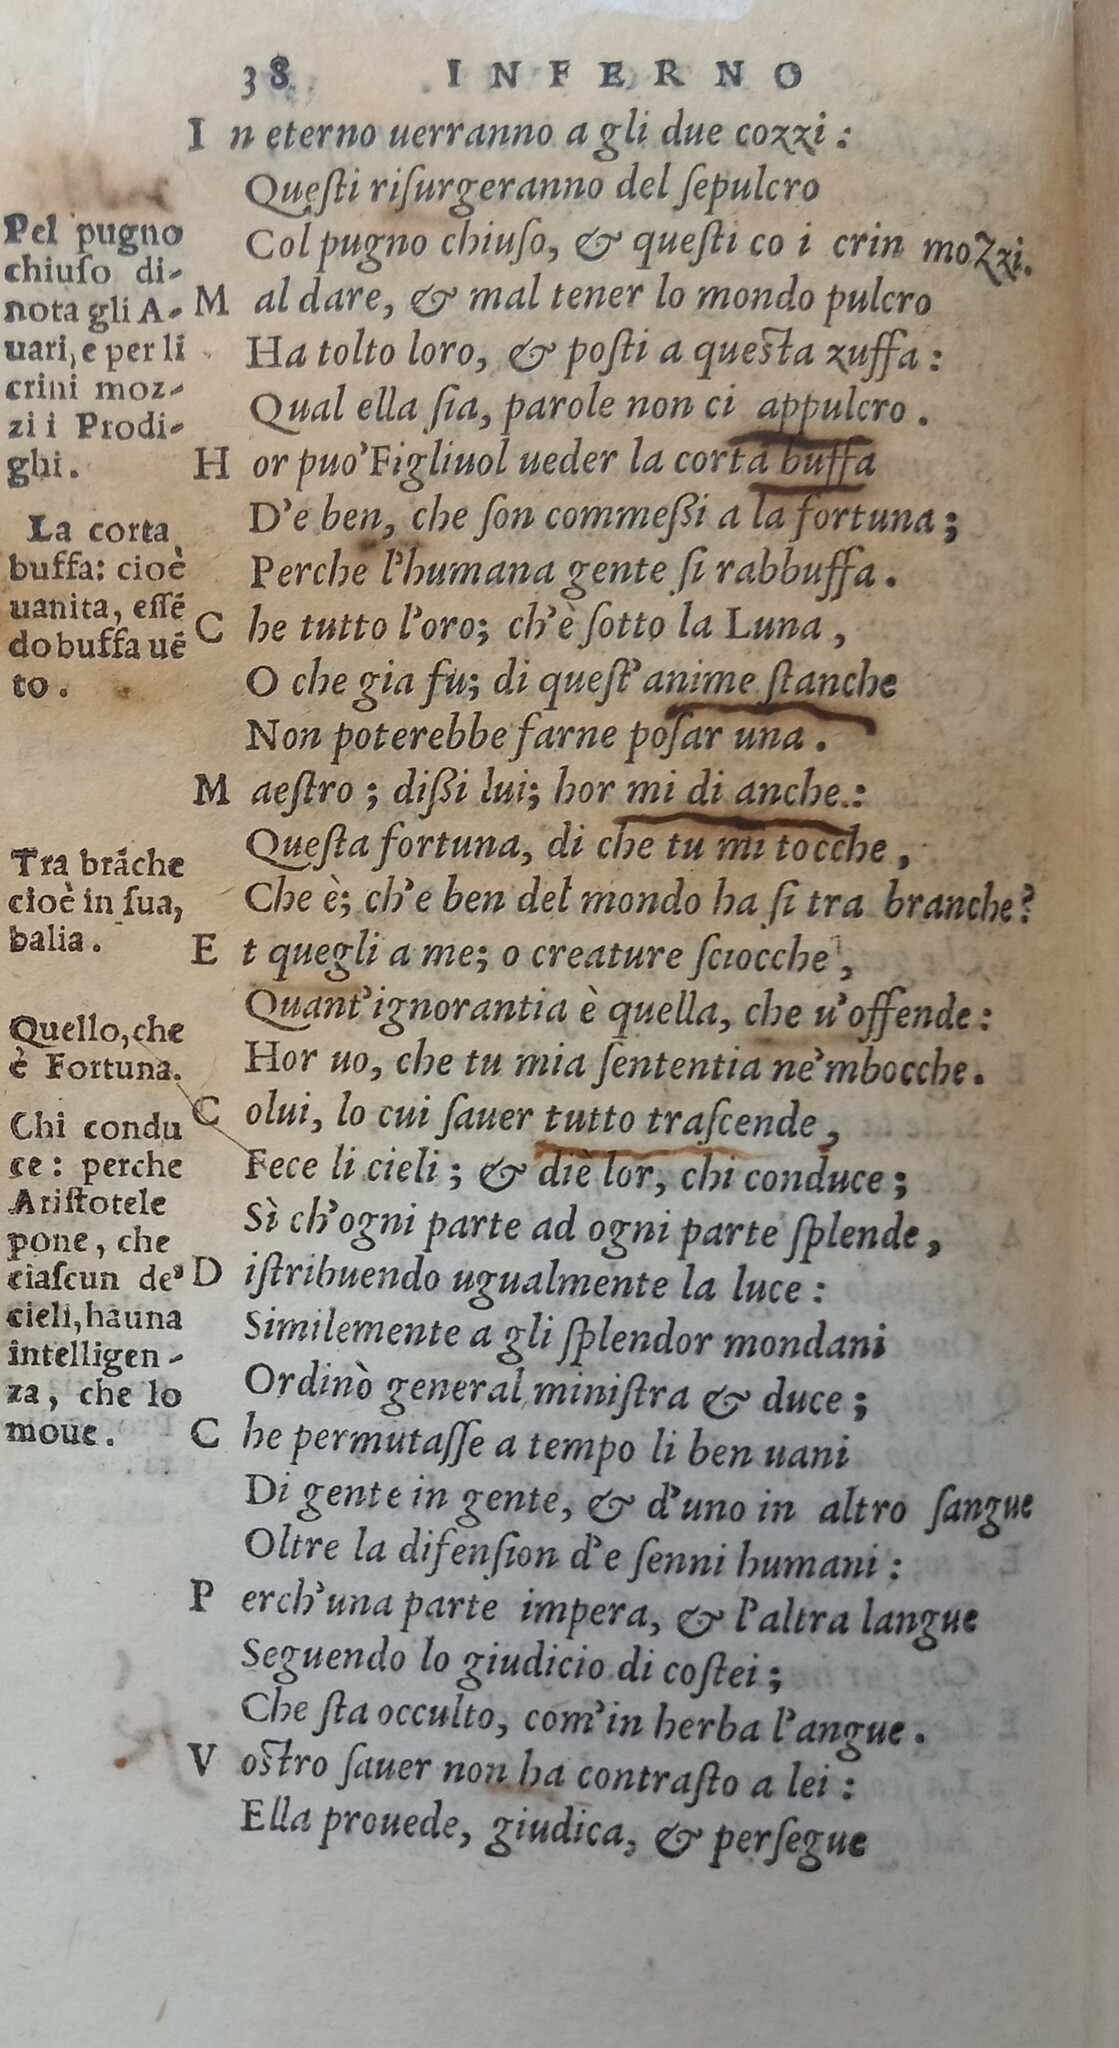 38 INFERNO
In eterno uerranno a gli due cozzi:
Queſti riſurgeranno del ſepulcro
Col pugno chiuſo, & queſti co i crin mozzi.
Mal dare, & mal tener lo mondo pulcro
Ha tolto loro, & poſti a queſta zuffa:
Qual ella ſia, parole non ci appulcro.
Hor puo' Figliuol ueder la corta buffa
D'e ben, che ſon commeßi a la fortuna;
Perche l'humana gente ſi rabbuffa.
Che tutto l'oro; ch'è ſotto la Luna,
O che gia fu; di queſt'anime ſtanche
Non poterebbe farne poſar una.
Maeſtro; dißi lui; hor mi di anche:
Queſta fortuna, di che tu mi tocche,
Che è; ch'e ben del mondo ha ſi tra branche?
Et quegli a me; o creature ſciocche,
Quant'ignorantia è quella, che u'offende:
Hor uo, che tu mia ſententia ne'mbocche.
Colui, lo cui ſauer tutto traſcende,
Fece li cieli; & diè lor, chi conduce;
Sì ch'ogni parte ad ogni parte ſplende,
Diſtribuendo ugualmente la luce:
Similemente a gli ſplendor mondani
Ordinò general miniſtra & duce;
Che permutaſſe a tempo li ben uani
Di gente in gente, & d'uno in altro ſangue
Oltre la difenſion d'e ſenni humani:
Perch'una parte impera, & l'altra langue
Seguendo lo giudicio di coſtei;
Che ſta occulto, com'in herba l'angue.
Voſtro ſauer non ha contraſto a lei:
Ella prouede, giudica, & perſegue
Pel pugno
chiuſo di-
nota gli A-
uari, e per li
crini moz-
zi i Prodi-
ghi.
La corta
buffa: cioè
uanita, eſſẽ
do buffa uẽ
to.
Tra brãche
cioè in ſua,
balia.
Quello, che
è Fortuna.
Chi condu
ce: perche
Ariſtotele
pone, che
ciaſcun de'
cieli, ha una
intelligen-
za, che lo
moue.